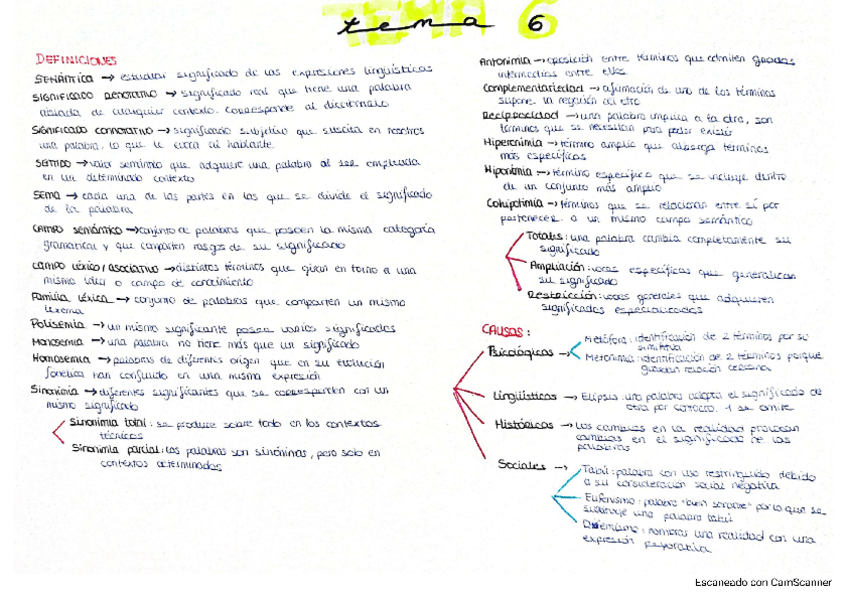 tema 6
DEFINICIONES
SEMÁNTICA → estudiar significado de las expresiones lingüísticas
SIGNIFICADO DENOTATIVO → significado real que tiene una palabra
aislada de cualquier contexto. Corresponde al diccionario
SIGNIFICADO CONNOTATIVO → significado subjetivo que suscita en nosotros
una palabra, lo que le evoca al hablante
SENTIDO → valor semántico que adquiere una palabra al ser empleada
en un determinado contexto
SEMA → cada una de las partes en las que se divide el significado
de la palabra
CAMPO SEMÁNTICO → conjunto de palabras que poseen la misma categoría
gramatical y que comparten rasgos de su significado
CAMPO LÉXICO/ASOCIATIVO → distintos términos que giran en torno a una
misma idea o campo de conocimiento
Familia léxica → conjunto de palabras que comparten un mismo
lexema
Polisemia → un mismo significante posee varios significados
Monosemia → una palabra no tiene más que un significado
Homosemia → palabras de diferentes origen que en su evolución
fonética han confluido en una misma expresión
Sinonimia → diferentes significantes que se corresponden con un
mismo significado
Sinonimia total: se produce sobre todo en los contextos
técnicos
Sinonimia parcial: las palabras son sinónimas, pero solo en
contextos determinados
Antonimia → oposición entre términos que admiten grados
intermedios entre ellos
Complementariedad → afirmación de uno de los términos
supone la negación del otro
Reciprocidad → una palabra implica a la otra, son
términos que se necesitan para poder existir
Hiperonimia → término amplio que alberga términos
más específicos
Hiponimia → término específico que se incluye dentro
de un conjunto más amplio
Cohiponimia → términos que se relacionan entre sí por
pertenecer a un mismo campo semántico
Totales: una palabra cambia completamente su
significado
Ampliación: voces específicas que generalizan
su significado
Restricción: voces generales que adquieren
significados especializados
CAUSAS:
Psicológicas →
Metáfora: identificación de 2 términos por su
similitud
Metonimia: identificación de 2 términos porque
guardan relación cercana
Lingüísticas → Elipsis: una palabra adopta el significado de
otra por contacto. 1 se omite
Históricas → Los cambios en la realidad provocan
cambios en el significado de las
palabras
Sociales →
Tabú: palabra con uso restringido debido
a su consideración social negativa
Eufemismo: palabra "bien sonante" por lo que se
sustituye una palabra tabú
Disfemismo: nombrar una realidad con una
expresión peyorativa
Escaneado con CamScanner